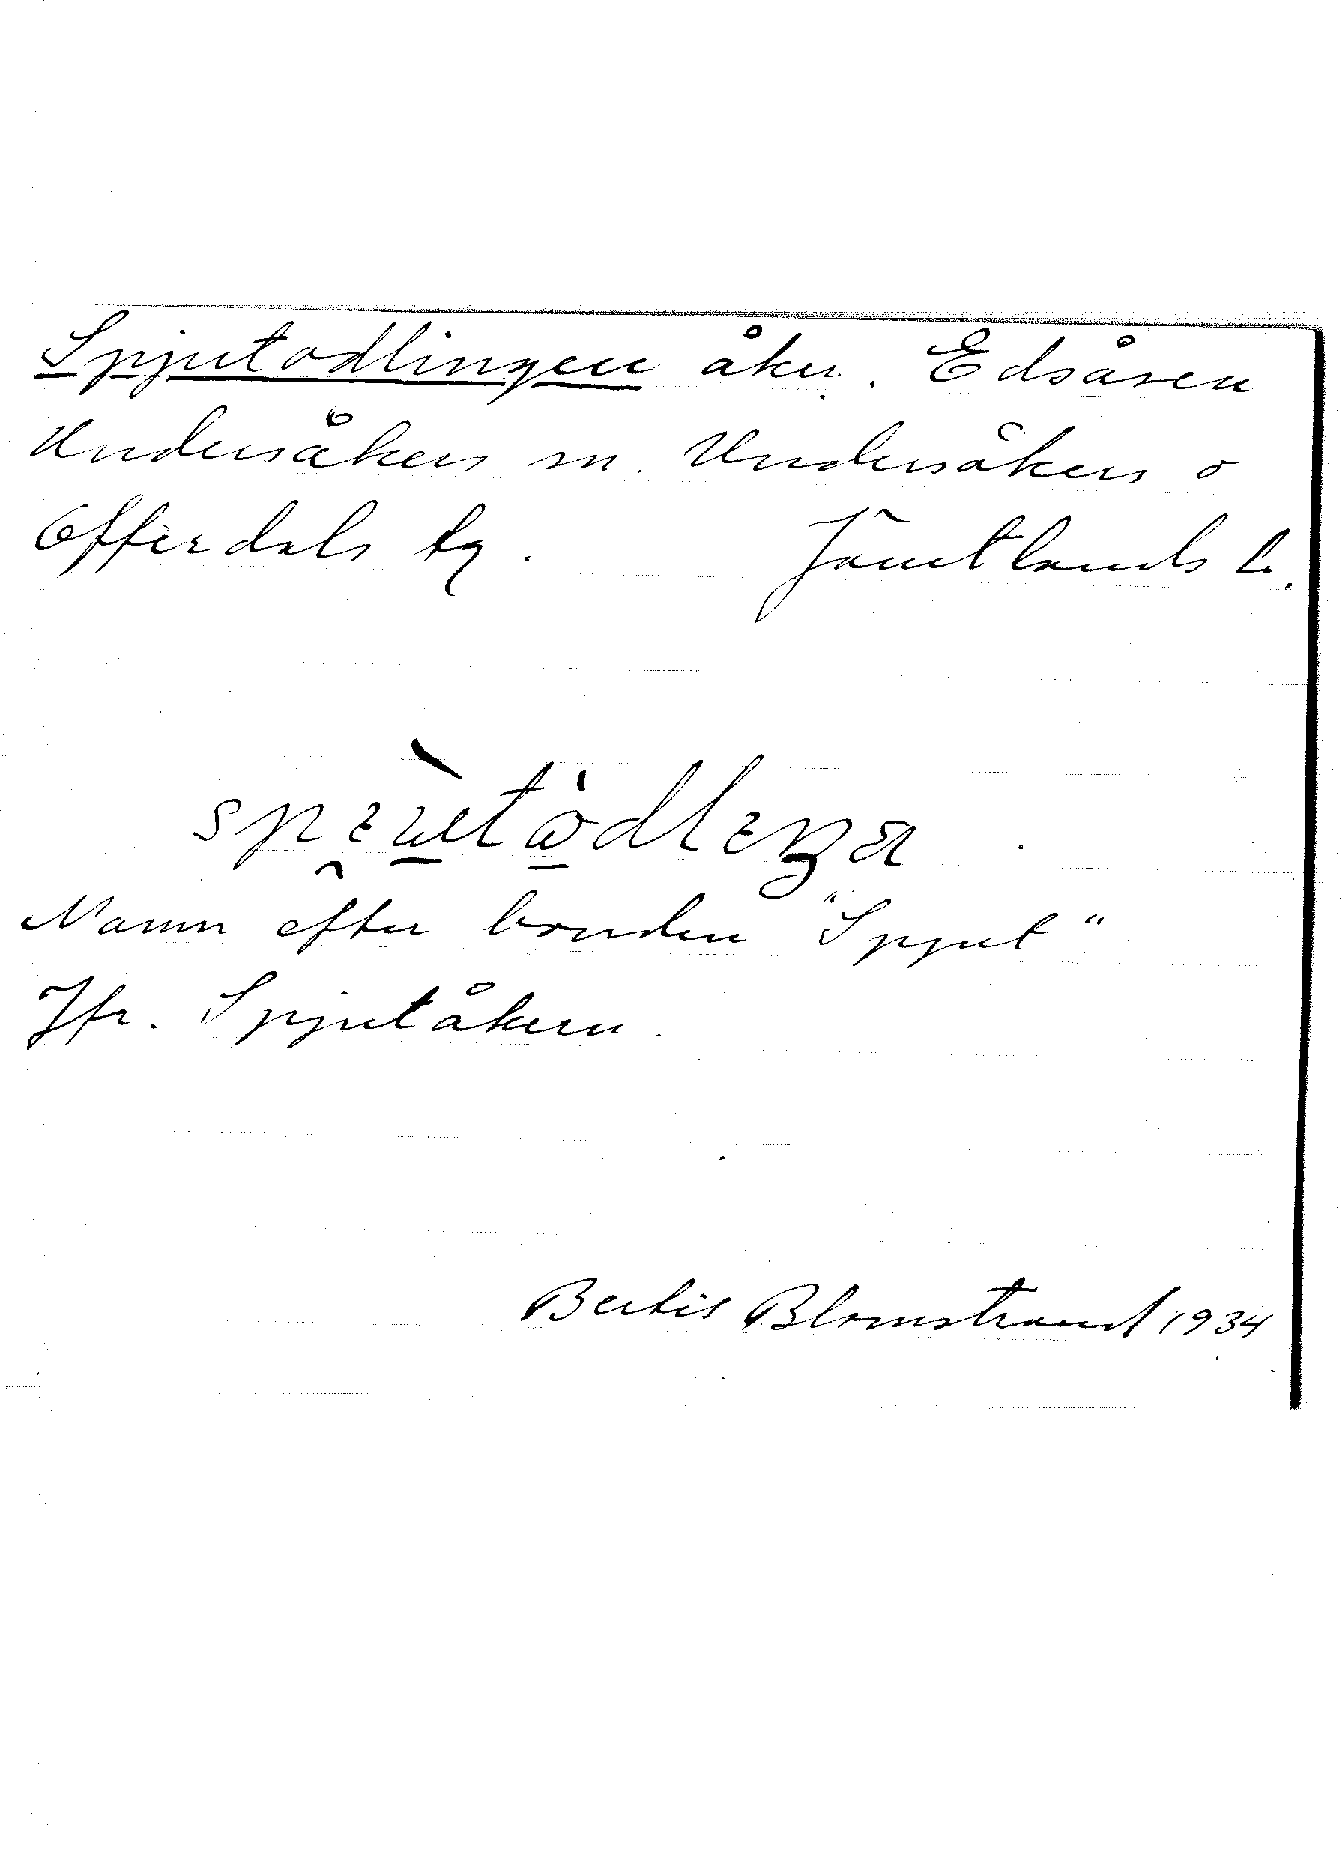 Spjutodlingen åker. Edsåsen
Undersåkers sn. Undersåkers o
Offerdals tg. Jämtlands l.
Namn efter bonden "Spjut"
Jfr. Spjutåkern.
Bertil Blomstrand 1934